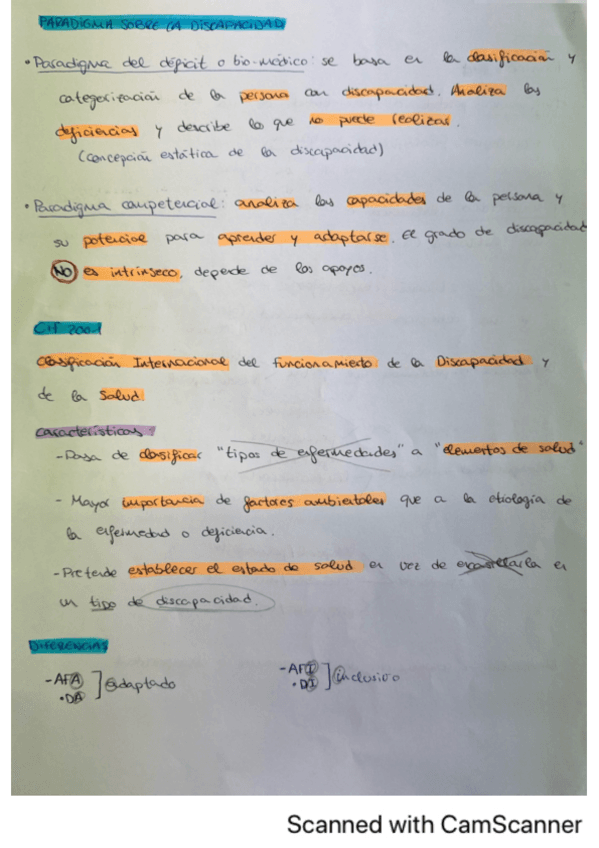 PARADIGMA SOBRE LA DISCAPACIDAD
• Paradigma del déficit o bio-médico: se basa en la clasificación y
categorización de la persona con discapacidad. Analiza las
deficiencias y describe lo que no puede realizar.
(concepción estática de la discapacidad)
• Paradigma competencial: analiza las capacidades de la persona y
su potencial para aprender y adaptarse. El grado de discapacidad
NO es intrínseco, depende de los apoyos.
CIF 2001
Clasificación Internacional del Funcionamiento de la Discapacidad y
de la Salud
Características:
- Pasa de clasificar "tipos de enfermedades" a "elementos de salud"
- Mayor importancia de factores ambientales que a la etiología de
la enfermedad o deficiencia.
- Pretende establecer el estado de salud en vez de encasillarla en
un tipo de discapacidad.
DIFERENCIAS
- AFA ] adaptado
• DA
- AFI ] inclusivo
• DI
Scanned with CamScanner